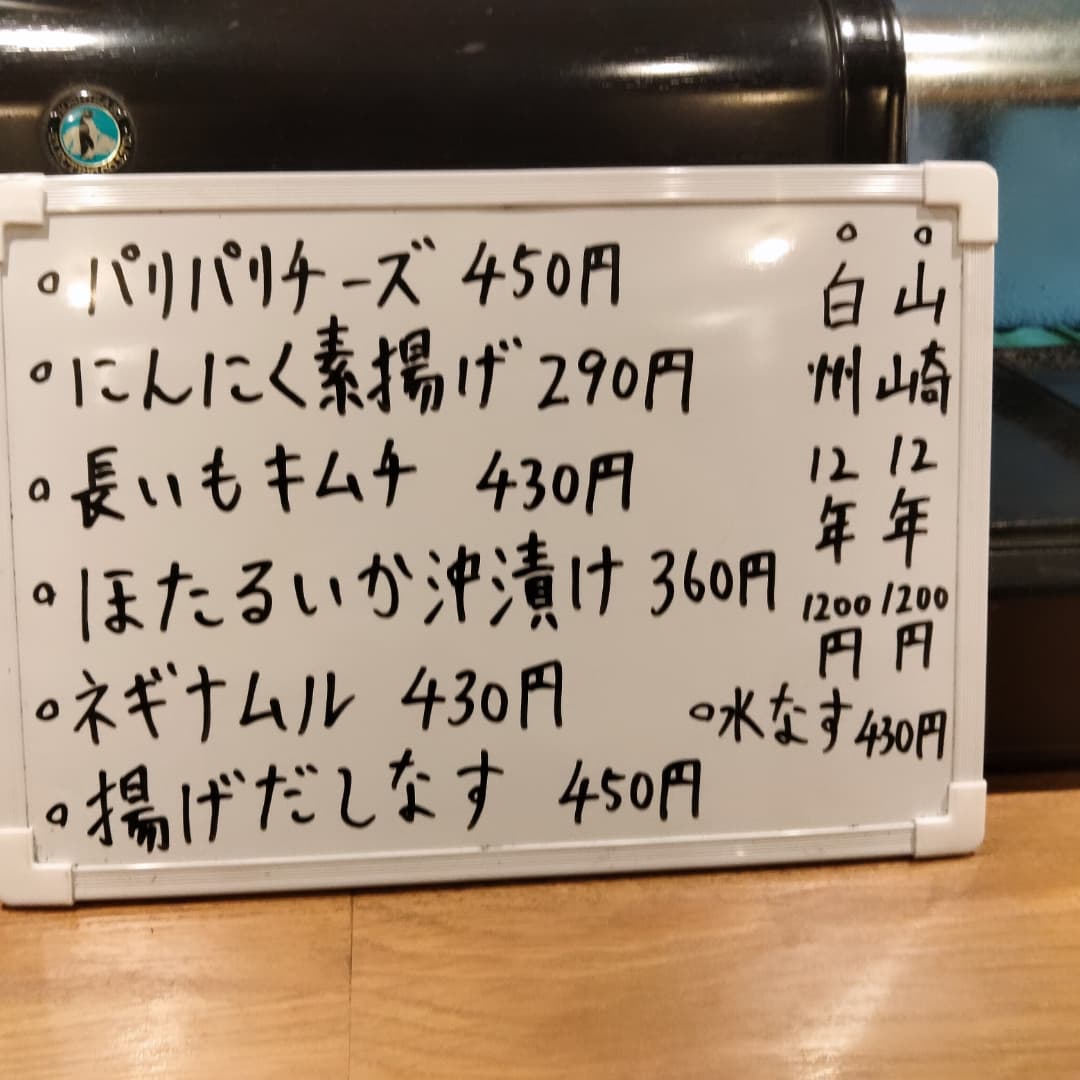 。パリパリチーズ 450円
。にんにく素揚げ 290円
。長いもキムチ 430円
。ほたるいか沖漬け 360円
。ネギナムル 430円
。揚げだしなす 450円
。山崎12年 1200円
。白州12年 1200円
。水なす 430円